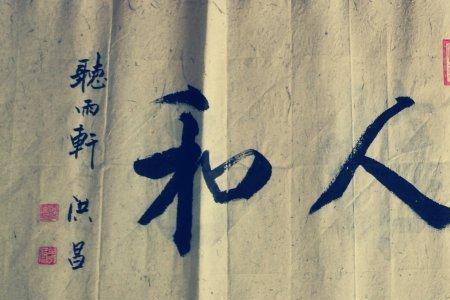 人和
聽雨軒 洪昌